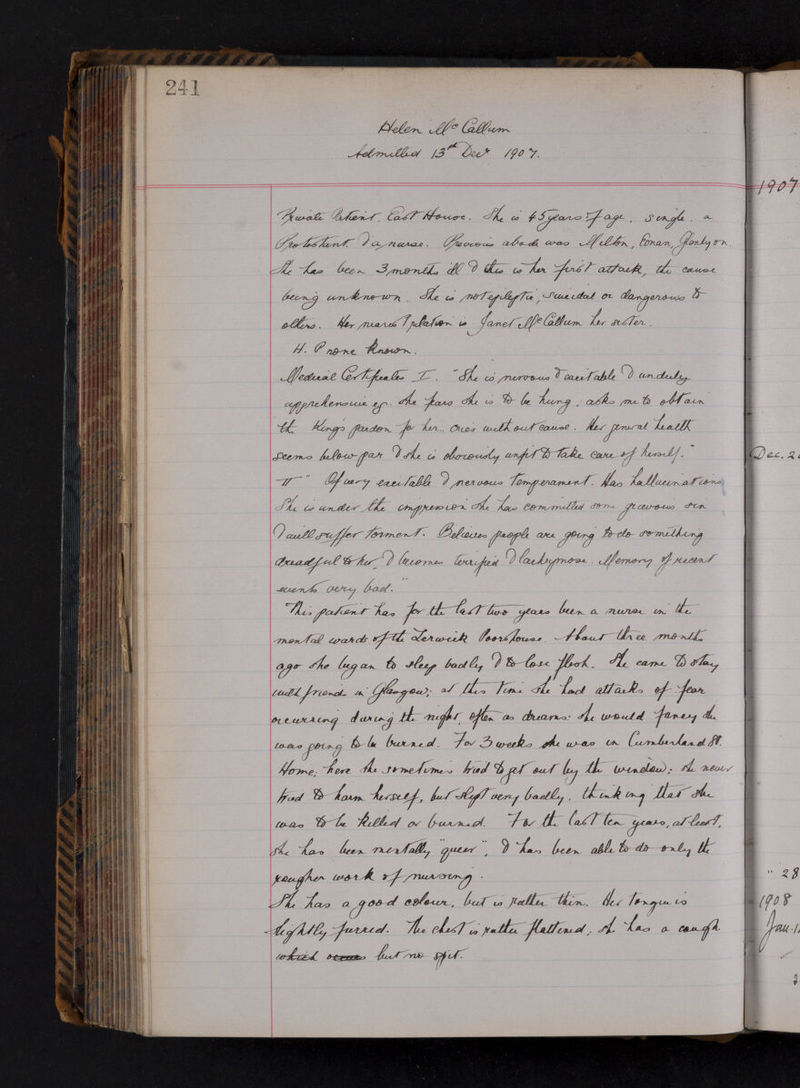 241
Helen McCallum
Admitted 13th Decr 1907.
1907
Private Patient. East House. She is 45 years of age, single, a
Protestant & a nurse. Previous abode was Milton, Conan,
She has been 3 months ill & this is her first attack, the cause
being unknown. She is not epileptic, suicidal or dangerous to
others. Her nearest relation is Janet McCallum her sister.
H. P none known.
Medical Certificates I. "She is nervous & excitable & unduly
apprehensive eg. she fears she is to be hung; asks me to obtain
the King's pardon for her. Cries without cause. Her general health
seems below par & she is obviously unfit to take care of herself."
II "Of very excitable & nervous temperament. Has hallucinations
She is under the impression she has committed some grievous sin
& will suffer torment. Believes people are going to do something
dreadful to her, & becomes terrified & lachrymose. Memory of recent
events very bad."
This patient has for the last two years been a nurse in the
mental wards of the Lerwick Poorshouse. About three months
ago she began to sleep badly & to lose flesh. She came to stay
with friends in Glasgow; at this time she had attacks of fear
occurring during the night, often as dreams: she would fancy she
was going to be burned. For 3 weeks she was in Cumberland St.
Home; here she sometimes tried to get out by the window; she never
tried to harm herself, but slept very badly, thinking that she
was to be killed or burned. For the last ten years, at least,
she has been mentally "queer", & has been able to do only the
rougher work of nursing.
She has a good colour, but is rather thin. Her tongue is
lightly furred. The chest is rather flattened; she has a cough
which occurs but no spit.
Dec. 2
" 28
1908
Jan. 1